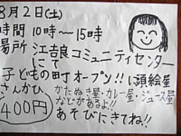 8月2日(土)
時間 10時〜15時
場所 江吉良コミュニティセンター
にて
子どもの町オープン!!に顔絵屋
さんかひ かたぬき屋・カレー屋・ジュース屋
400円 などがあるよ!!
あそびにきてね!!